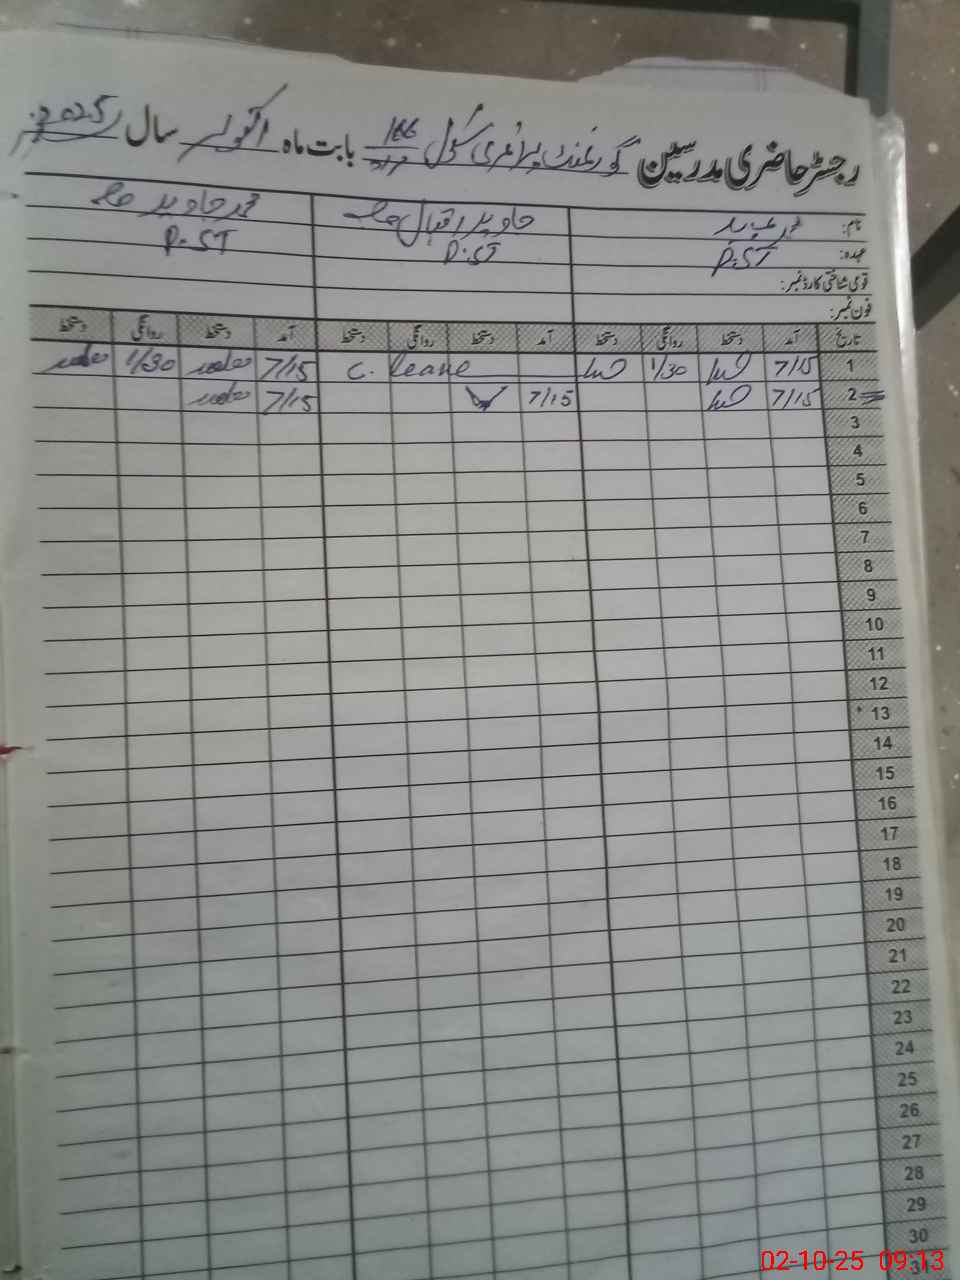 رجسٹر حاضری مدرسین گورنمنٹ پرائمری سکول 166 بابت ماہ اکتوبر سال 2025
نام: محمد جاوید اقبال محمد جاوید
عہدہ: P.ST P.ST P.ST
قومی شناختی کارڈ نمبر:
فون نمبر:
تاریخ آمد دستخط روانگی دستخط آمد دستخط روانگی دستخط آمد دستخط روانگی دستخط
1 7/15 1/30 C. leave 7/15 1/30
2 7/15 7/15 7/15
3
4
5
6
7
8
9
10
11
12
13
14
15
16
17
18
19
20
21
22
23
24
25
26
27
28
29
30
02-10-25 09:13